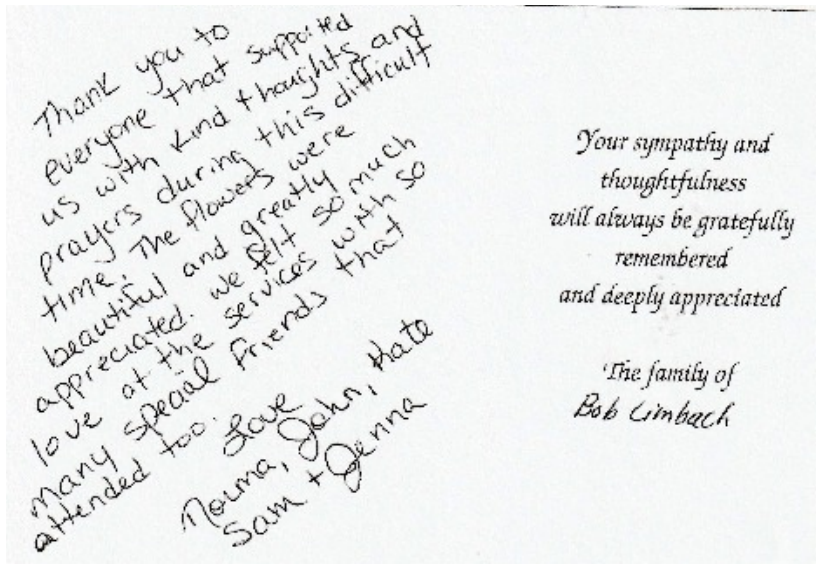 Thank you to
everyone that supported
us with kind thoughts and
prayers during this difficult
time. The flowers were
beautiful and greatly
appreciated. We felt so much
love at the services with so
many special friends that
attended too.
Love
Norma, John, Kate
Sam + Jenna
Your sympathy and
thoughtfulness
will always be gratefully
remembered
and deeply appreciated
The family of
Bob Limbach